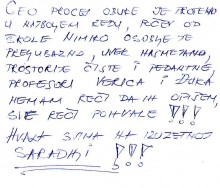 CEO PROCES OBUKE JE PROTEKAO
U NAJBOLJEM REDU, POČEV OD
ŠKOLE NIMIRO OSOBLJE JE
PREJUBAZNO, UVEK NASMEJANO,
PROSTORIJE ČISTE I PEDANTNE,
PROFESORI VERICA I DUKA
NEMAM REČI DA IH OPIŠEM,
SVE REČI POHVALE !!!
HVALA SVIMA NA IZUZETNOJ
SARADNJI !!!